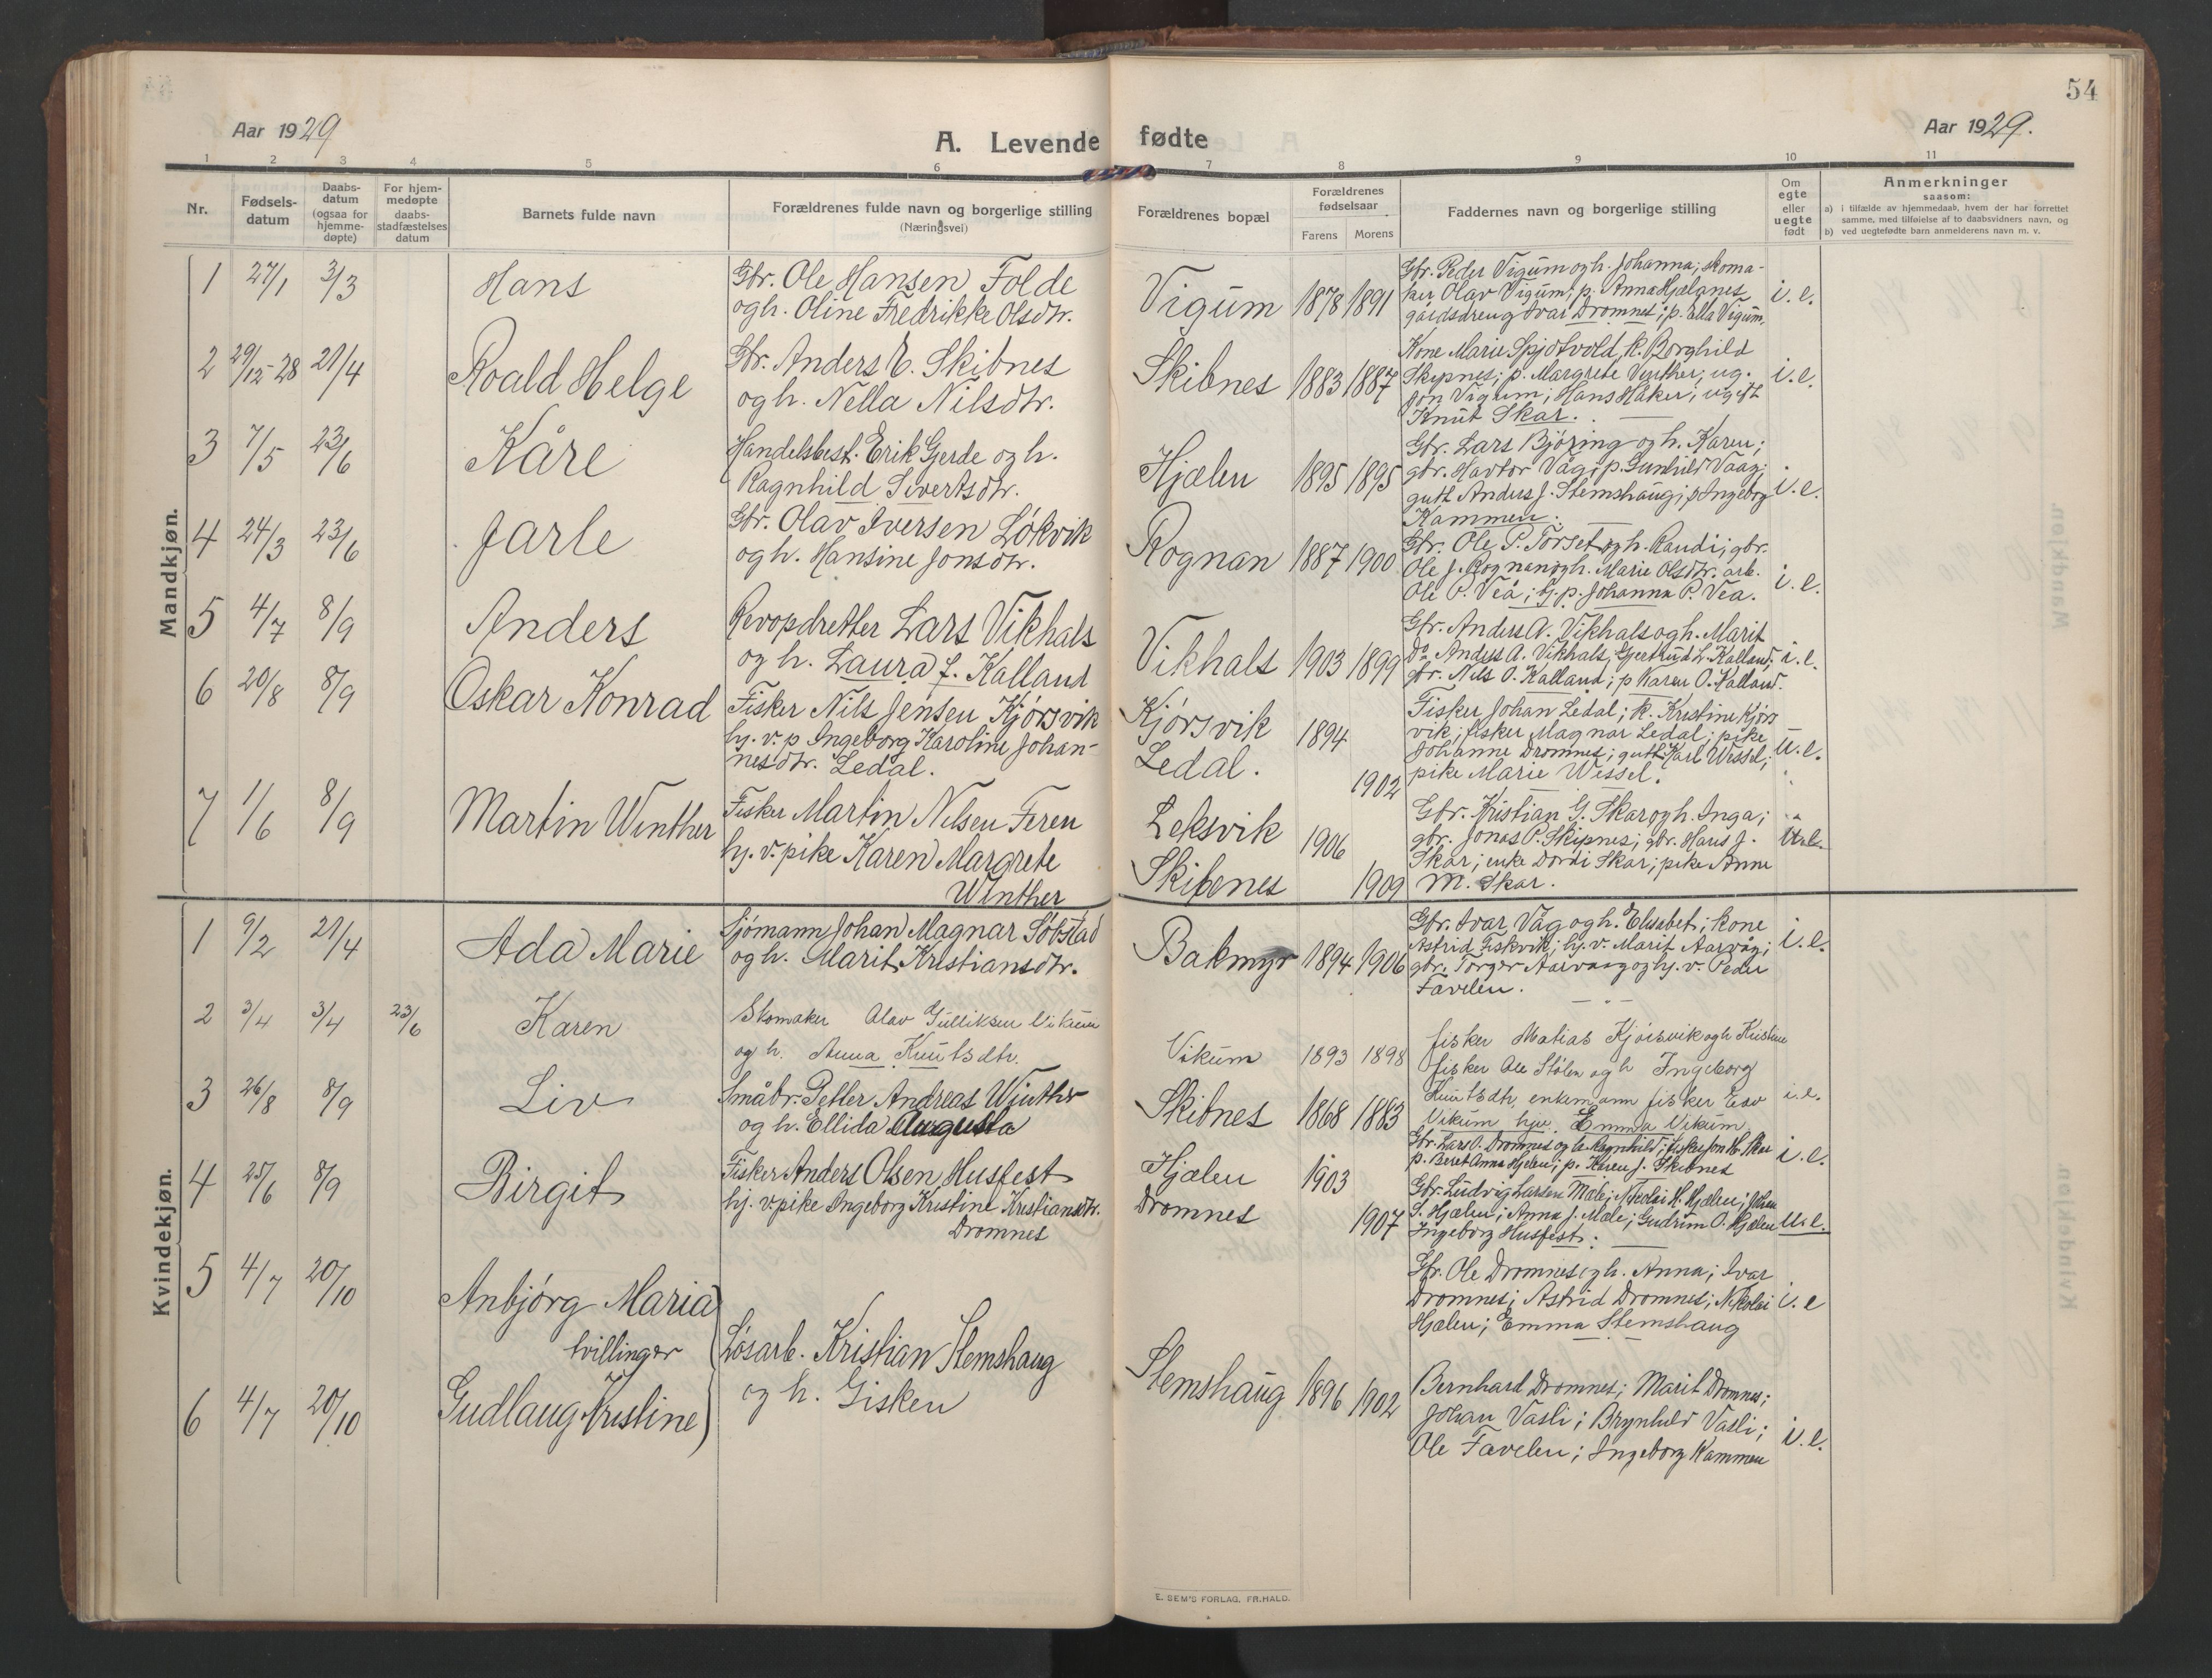 54
Aar 1929
A. Levende fødte
Aar 1929.
1 2 3 4 5 6 7 8 9 10 11
Nr.
Fødsels-
datum
Daabs-
datum
(ogsaa for
hjemme-
døpte)
For hjem-
medøpte
daabs-
stadfæstelses
datum
Barnets fulde navn
Forældrenes fulde navn og borgerlige stilling
(Næringsvei)
Forældrenes bopæl
Forældrenes
fødselsaar
Farens Morens
Faddernes navn og borgerlige stilling
Om
egte
eller
uegte
født
Anmerkninger
saasom:
a) i tilfælde av hjemmedaab, hvem der har forrettet
samme, med tilføielse af to daabsvidners navn, og
b) ved uegtefødte barn anmelderens navn m. v.
Mandkjøn.
1 27/1 3/3 Hans
Gbr. Ole Hansen Folde
og h. Oline Fredrikke Olsdtr.
Vigum 1878 1891
Gbr. Peder Vigum og h. Johanna; skoma-
ker Olav Vigum; p. Anna Hjælanes
gårdsdreng Ivar Dromnes; p. Ella Vigum.
i. e.
2 29/12-28 21/4 Roald Helge
Gbr. Anders E. Skibnes
og h. Nella Nilsdtr.
Skibnes 1883 1887
Kone Marie Spjøtvold, k. Borghild
Skipnes; p. Margrete Vinther; ug.
Jon Vigum; Hans Haker; ugift
Knut Skar.
i. e.
3 7/5 23/6 Kåre
Handelsbest. Erik Gjerde og h.
Ragnhild Sivertsdtr.
Hjælen 1895 1895
Gbr. Lars Bjøring og h. Karen;
gbr. Havtor Våg; p. Gunhild Vaag;
gutt Anders J. Stemshaug; p Ingeborg
Kammen.
i. e.
4 24/3 23/6 Jarle
Gbr. Olav Iversen Løkvik
og h. Hansine Jonsdtr.
Rognan 1887 1900
Gbr. Ole P. Torset og h. Randi; gbr.
Ole J. Rognan og h. Marie Olsdtr. arb.
Ole P. Vea; Gj. p. Johanna P. Vea.
i. e.
5 4/7 8/9 Anders
Revopdretter Lars Vikhals
og h. Laura J. Kalland
Vikhals 1903 1899
Gbr. Anders A. Vikhals og h. Marit
Do Anders A. Vikhals; Gjertrud L. Kalland;
gbr. Nils O. Kalland; p Karen O. Kalland.
i. e.
6 20/8 8/9 Oskar Konrad
Fisker Nils Jensen Kjørsvik
hj. v. p Ingeborg Karoline Johan-
nesdtr. Ledal.
Kjørsvik 1894
Ledal. 1902
Fisker Johan Ledal; k. Kristine Kjørs
vik; fisker Magnar Ledal; pike
Johanne Dromnes; gutt Karl Wessel;
pike Marie Wessel.
u. e.
7 1/6 8/9 Martin Winther
Fisker Martin Nilsen Feren
hj. v. pike Karen Margrete
Winther
Leksvik 1906
Skibenes 1909
Gbr. Kristian G. Skar og h. Inga;
gbr. Jonas P. Skipnes; gbr. Hans J.
Skar; enke Dordi Skar; pike Anne
M. Skar.
u. e.
Kvindekjøn.
1 9/2 21/4 Ada Marie
Sjømann Johan Magnar Søbstad
og h. Marit Kristiansdtr.
Bakmyr 1894 1906
Gbr. Ivar Våg og h. Elisabet; kone
Astrid Fiskvik; hj. v. Marit Aarvåg;
gbr. Torger Aarvaag og hj. v. Peder
Favelen.
i. e.
2 3/4 3/4 23/6 Karen
Skomaker Olav Gulliksen Vikum
og h. Anna Knutsdtr.
Vikum 1893 1898
fisker Matias Kjørsvik og h Kristine
fisker Ole Stølen og h Ingeborg
Knutsdtr, enkemann fisker
Vikum hjv. Emma Vikum
i. e.
3 26/8 8/9 Liv
Småbr. Petter Andreas Winther
og h. Ellida Augusta
Skibnes 1868 1883
Gbr. Lars O. Dromnes og h. Ragnhild; fisker Jon H. Skar
p. Beret Anna Hjelen; p. Karen J. Skibnes
i. e.
4 25/6 8/9 Birgit
Fisker Anders Olsen Husfest
hj. v. pike Ingeborg Kristine Kristiansdtr.
Dromnes
Hjælen 1903
Dromnes 1907
Gbr. Ludvig Larsen Mæle; Nikolai H. Hjælen; Johan
S. Hjælen; Anna J. Mæle; Gudrun O. Hjælen
Ingeborg Husfest.
u. e.
5 4/7 20/10 Anbjørg Maria
tvillinger
Løsarb. Kristian Stemshaug
og h. Gisken
Gbr. Ole Dromnes og h. Anna; Ivar
Dromnes; Astrid Dromnes; Nikolai
Hjælen; Emma Stemshaug
i. e
6 4/7 20/10 Gudlaug Kristine
Stemshaug 1896 1902
Bernhard Dromnes; Marit Dromnes;
Johan Vasli; Brynhild Vasli;
Ole Favelen; Ingeborg Kammen
i. e.
E. SEM'S FORLAG, FR.HALD.